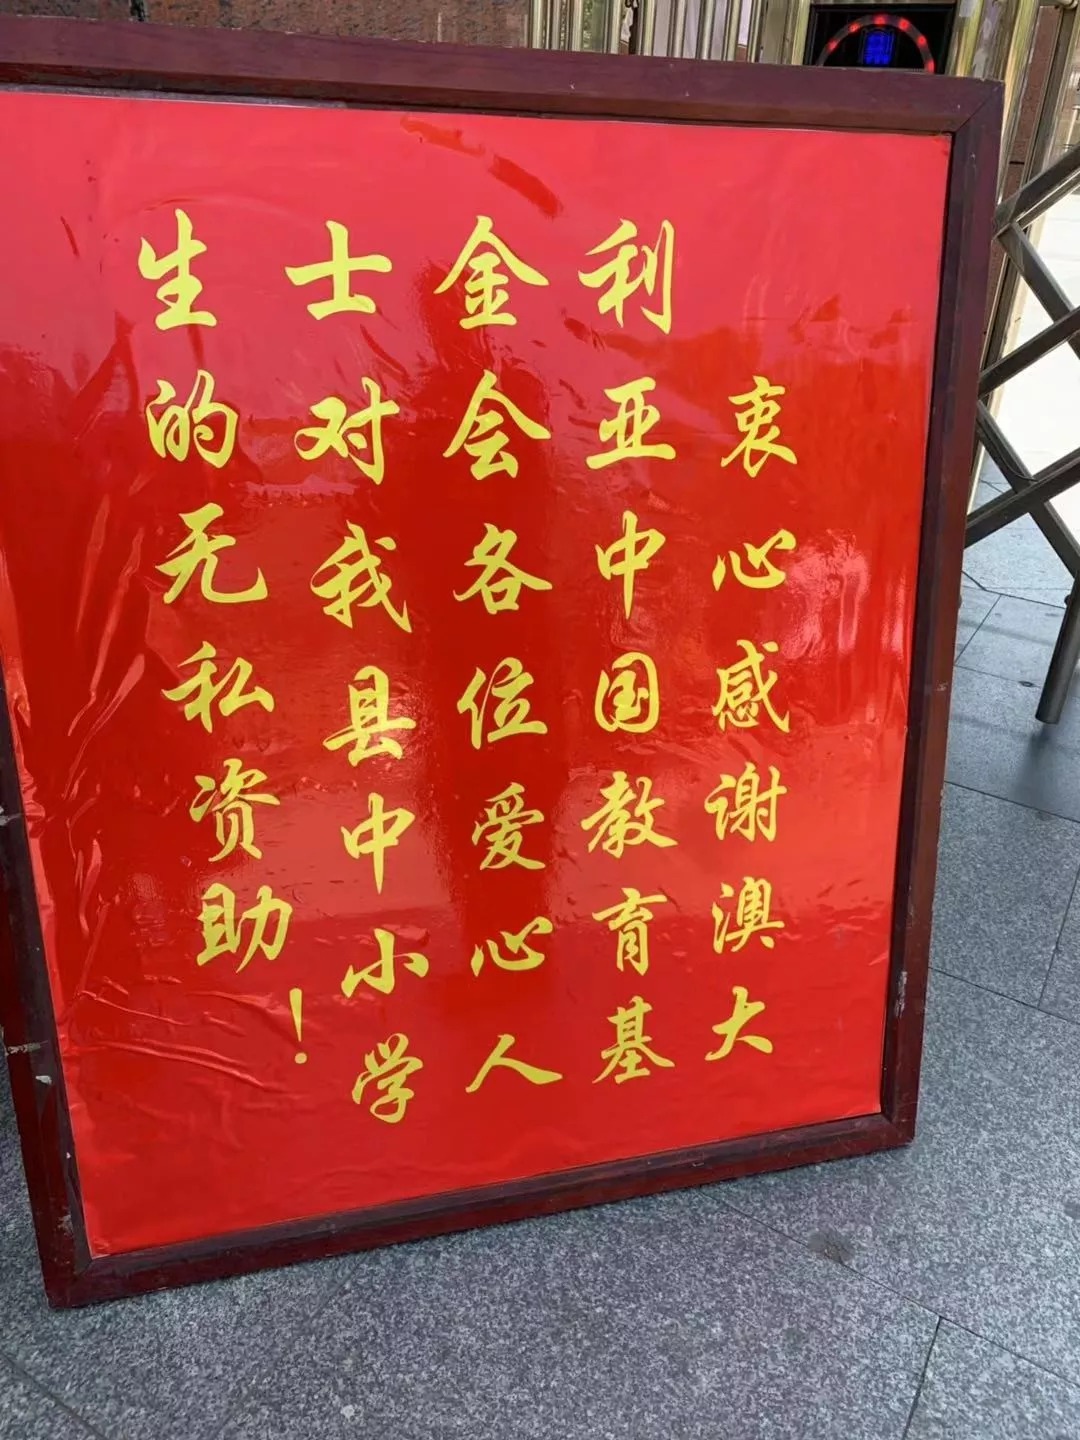 衷心感谢澳大
利亚中国教育基
金会各位爱心人
士对我县中小学
生的无私资助！